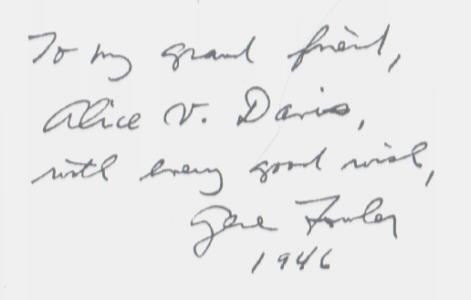 To my grand friend,
Alice V. Davis,
with every good wish,
Gene Fowler
1946